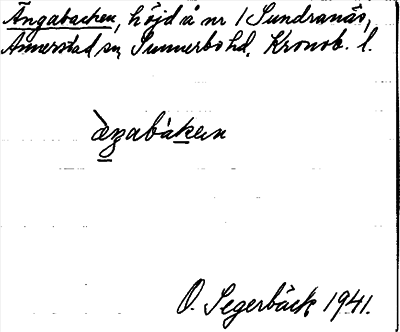 Ängabacken, höjd å nr 1 Sundranäs,
Annerstad sn Sunnerbo hd. Kronob. l.
O. Segerbäck 1941.